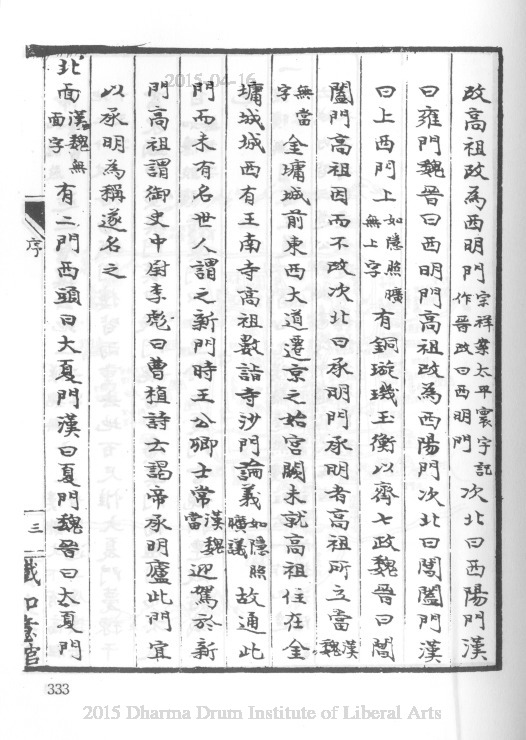 改高祖改為西明門宗祥案太平寰宇記作晉改曰西明門次北曰西陽門漢
曰雍門魏晉曰西明門高祖改為西陽門次北曰閶闔門漢
曰上西門上如隱照曠無上字有銅璇璣玉衡以齊七政魏晉曰閶
闔門高祖因而不改次北曰承明門承明者高祖所立當漢魏
無當字金墉城前東西大道遷京之始宮闕未就高祖住在金
墉城城西有王南寺高祖數詣寺沙門論義如隱照曠議故通此
門而未有名世人謂之新門時王公卿士常漢魏當迎駕於新
門高祖謂御史中尉李彪曰曹植詩云謁帝承明廬此門宜
以承明為稱遂名之
北面漢魏無面字有二門西頭曰大夏門漢曰夏門魏晉曰大夏門
序
三
鐵如意館
333
2015-04-16
2015 Dharma Drum Institute of Liberal Arts